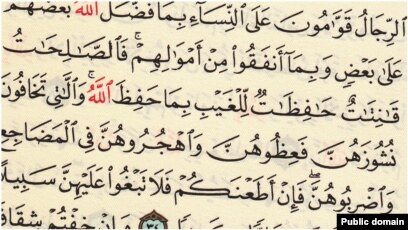 ٱلرِّجَالُ قَوَّٰمُونَ عَلَى ٱلنِّسَآءِ بِمَا فَضَّلَ ٱللَّهُ بَعْضَهُمْ
عَلَىٰ بَعْضٍ وَبِمَآ أَنفَقُوا۟ مِنْ أَمْوَٰلِهِمْ ۚ فَٱلصَّٰلِحَٰتُ
قَٰنِتَٰتٌ حَٰفِظَٰتٌ لِّلْغَيْبِ بِمَا حَفِظَ ٱللَّهُ ۚ وَٱلَّٰتِى تَخَافُونَ
نُشُوزَهُنَّ فَعِظُوهُنَّ وَٱهْجُرُوهُنَّ فِى ٱلْمَضَاجِعِ
وَٱضْرِبُوهُنَّ ۖ فَإِنْ أَطَعْنَكُمْ فَلَا تَبْغُوا۟ عَلَيْهِنَّ سَبِيلًا
٣٤ وَإِنْ خِفْتُمْ شِقَاقَ
Public domain